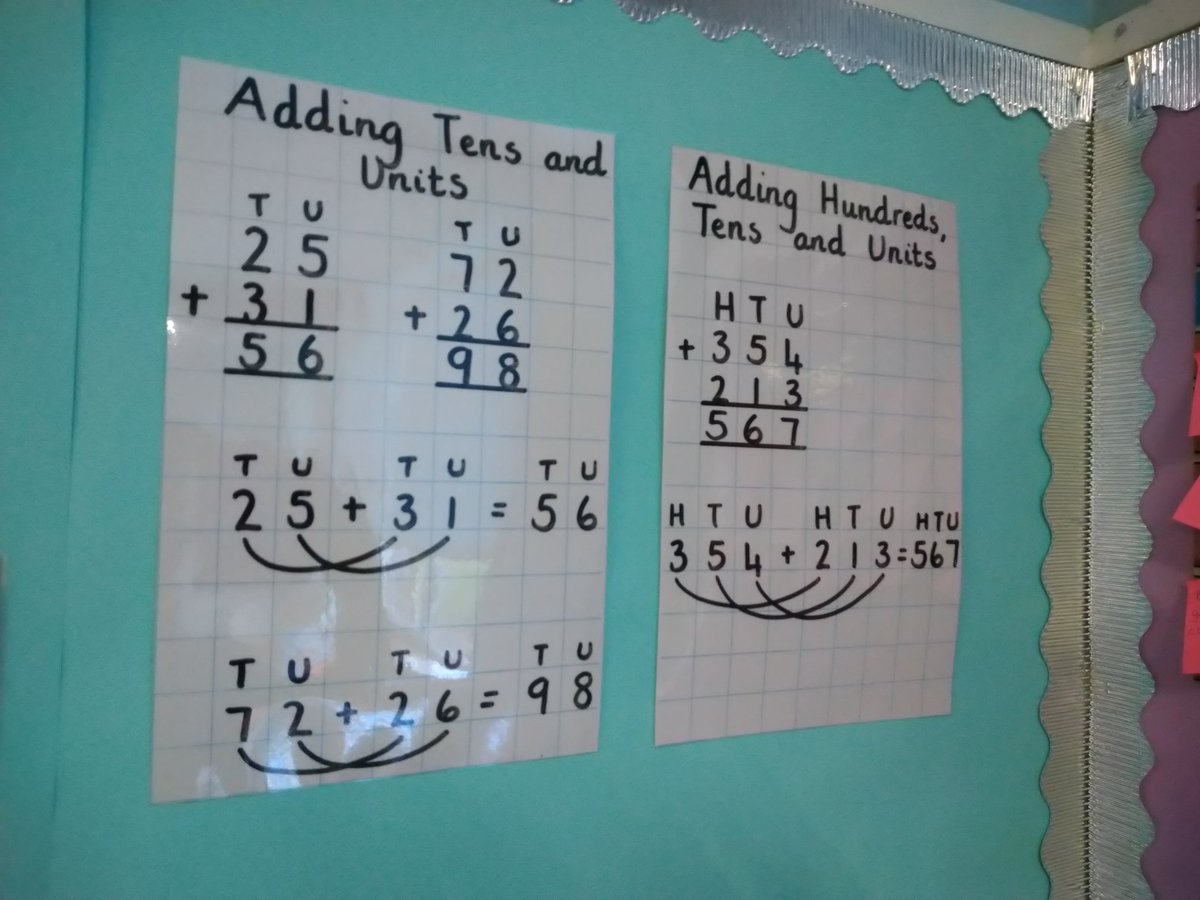 Adding Tens and
Units
T U
2 5
+ 3 1
5 6
T U
7 2
+ 2 6
9 8
T U T U T U
2 5 + 3 1 = 5 6
T U T U T U
7 2 + 2 6 = 9 8
Adding Hundreds,
Tens and Units
H T U
+ 3 5 4
2 1 3
5 6 7
H T U H T U H T U
3 5 4 + 2 1 3 = 567